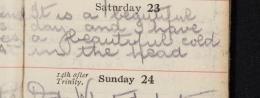 Saturday 23
It is a beautiful
day and I have
a beautiful cold
in the head
14th after
Trinity.
Sunday 24